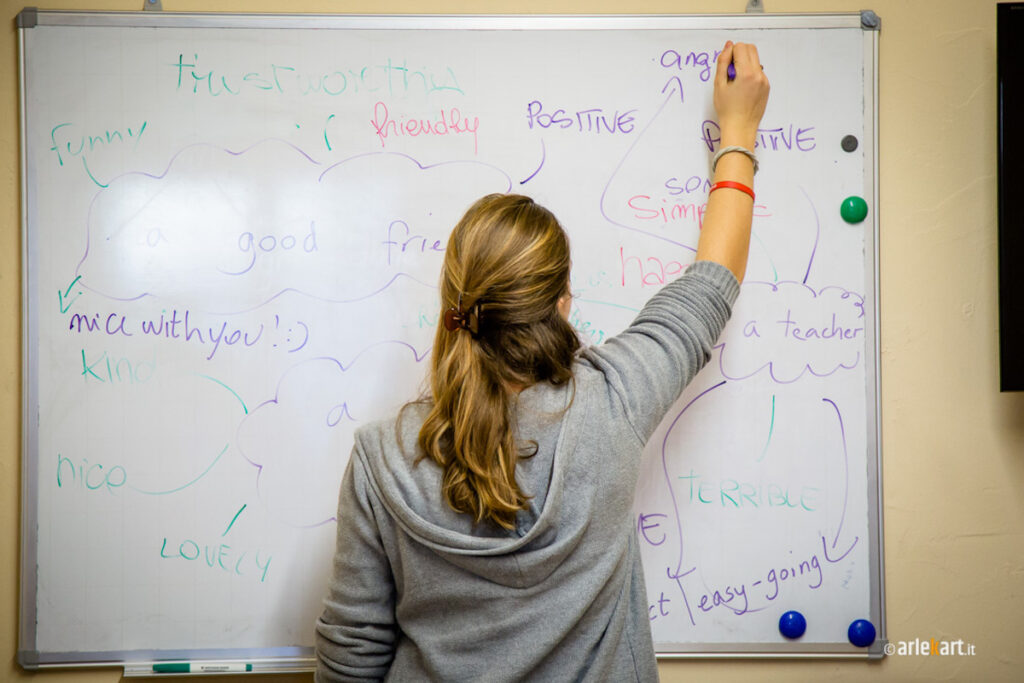 trustworthy
angr
funny
friendly
POSITIVE
POSITIVE
Simp
a good frie
a teacher
nice with you! :)
kind
a
nice
TERRIBLE
LOVELY
easy-going
ct
© arlekart.it